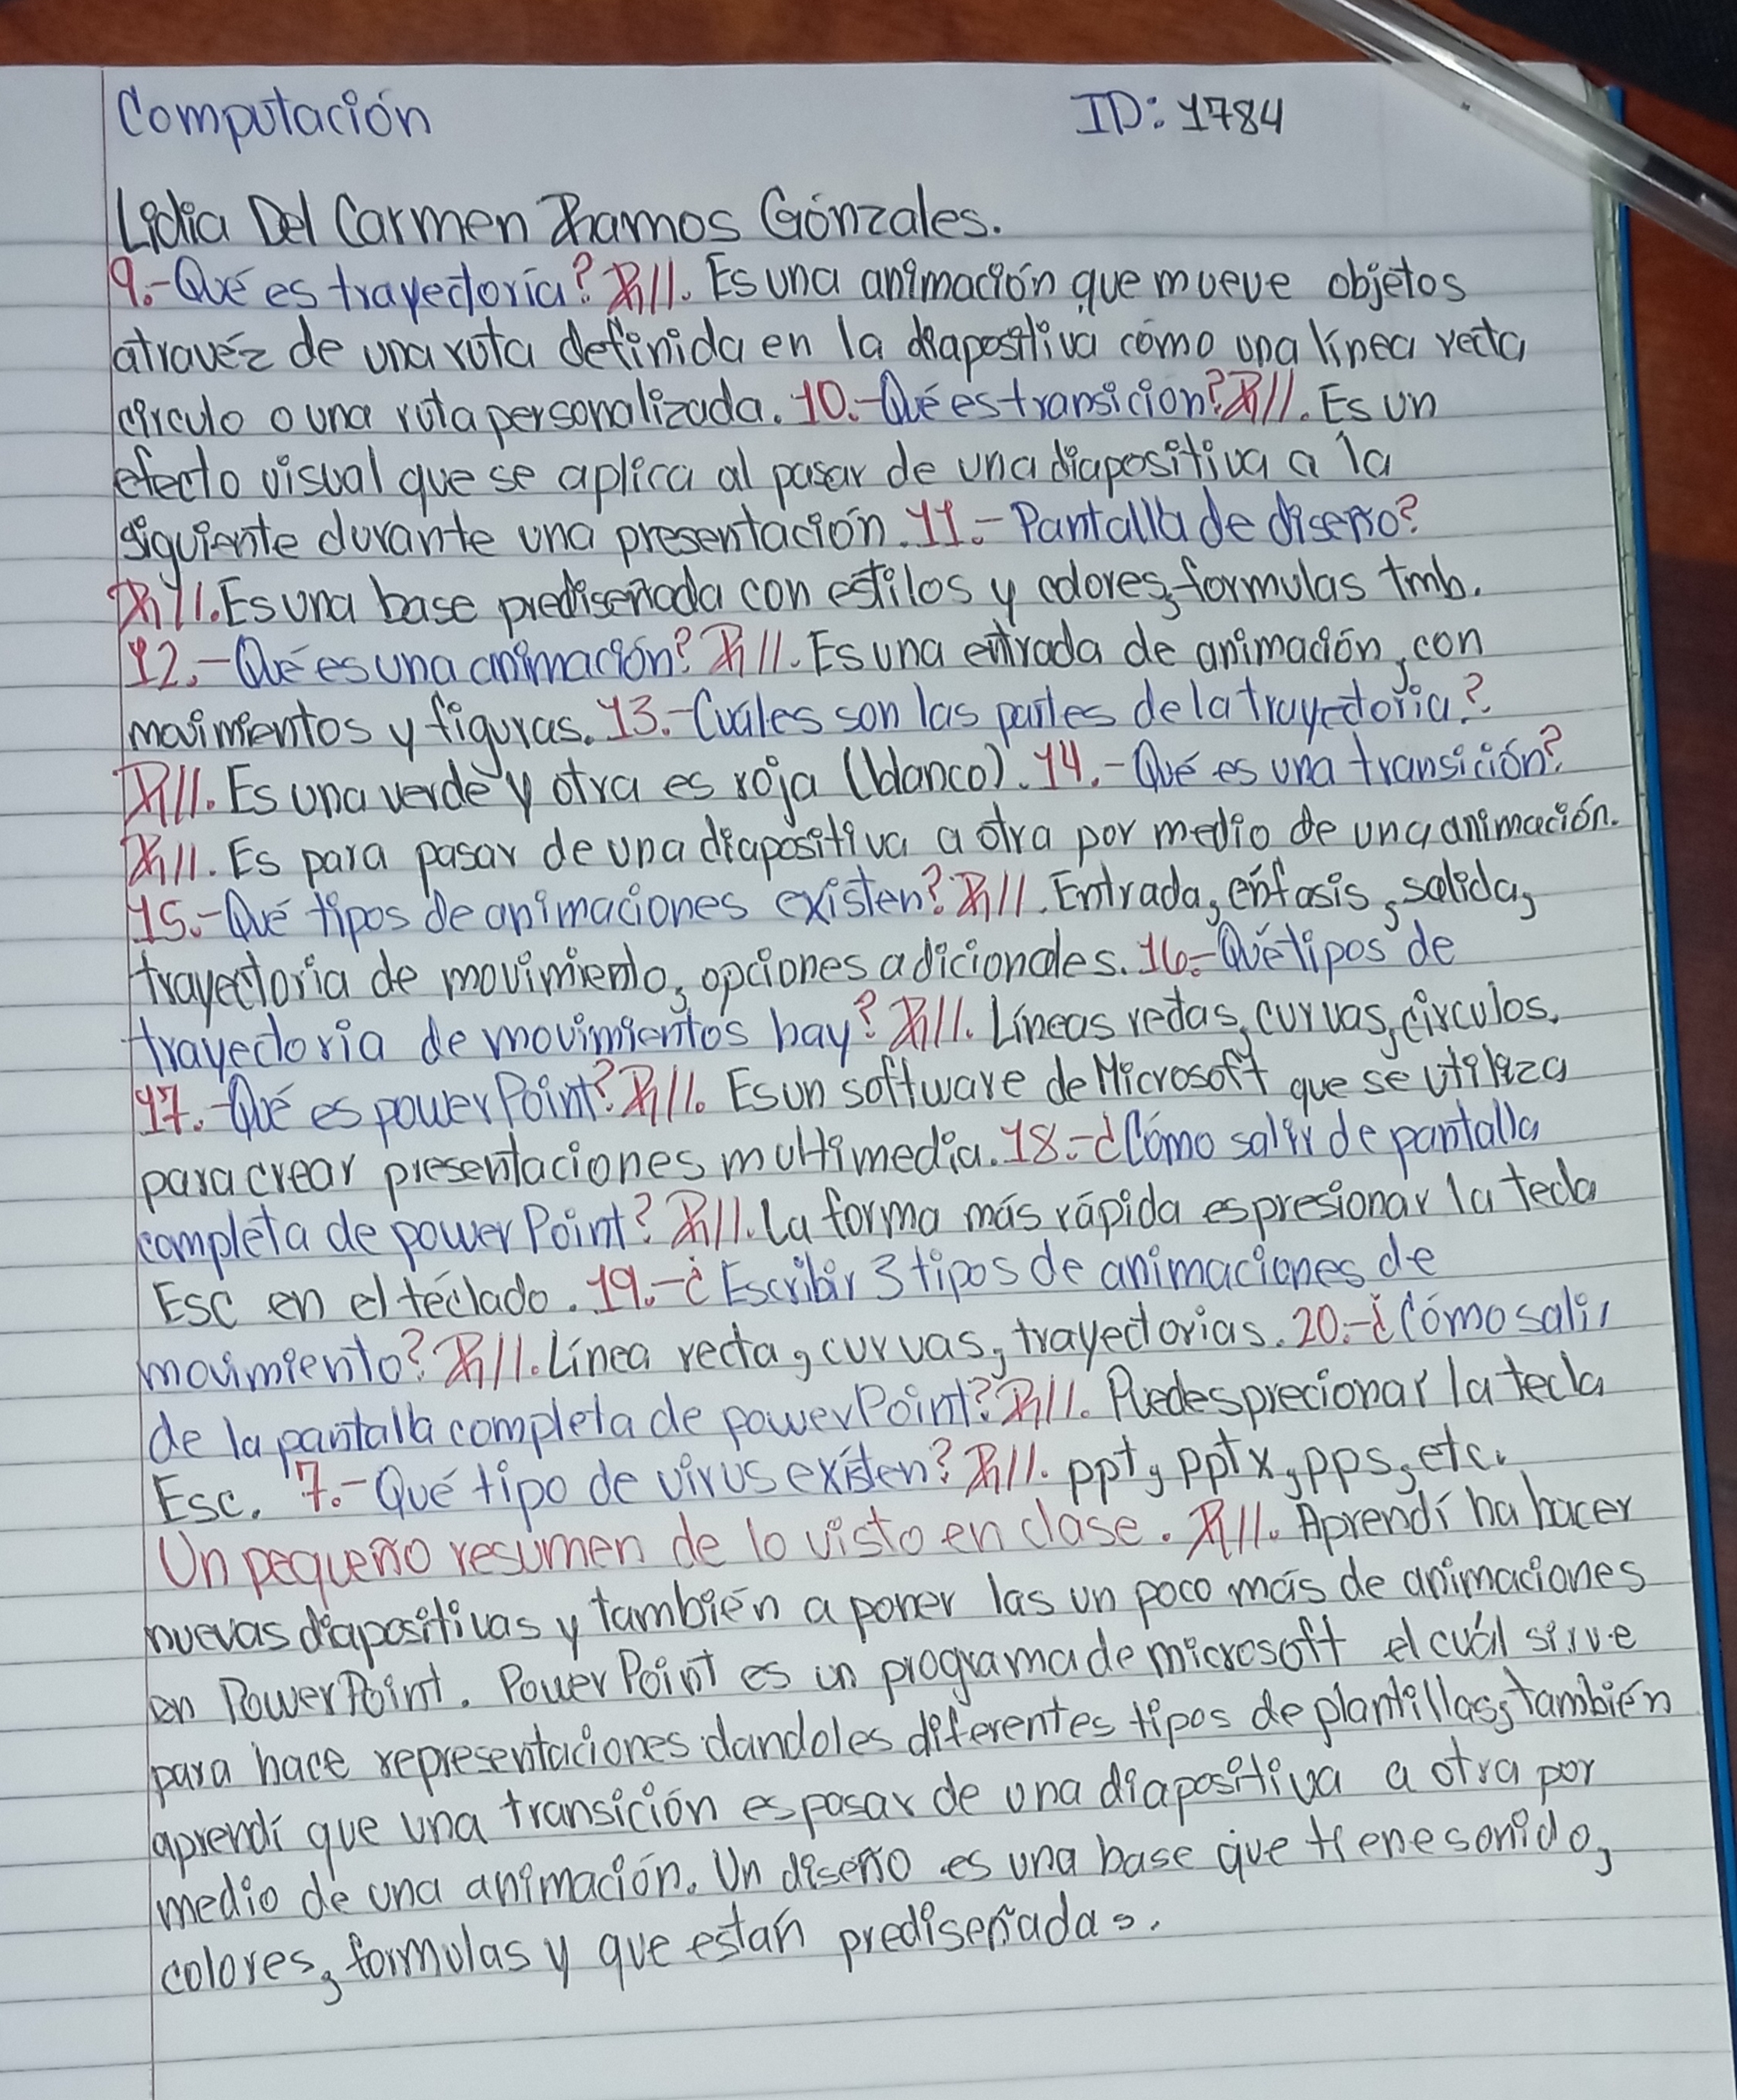 Computación ID: 1784
Lidia Del Carmen Ramos Gónzales.
9.-Qué es trayectoria? R//. Es una animación que mueve objetos
atravéz de una ruta definida en la diapositiva como una línea recta
circulo o una ruta personalizada. 10.-Qué es transicion? R//. Es un
efecto visual que se aplica al pasar de una diapositiva a la
siguiente durante una presentación. 11.- Pantalla de diseño?
R//. Es una base prediseñada con estilos y colores, formulas tmb.
12.-Qué es una animación? R//. Es una entrada de animación, con
movimientos y figuras. 13.-Cuáles son las partes de la trayectoria?
R//. Es una verde y otra es roja (blanco). 14.-Qué es una transición?
R//. Es para pasar de una diapositiva a otra por medio de una animación.
15.-Qué tipos de animaciones existen? R//. Entrada, énfasis, salida,
trayectoria de movimiento, opciones adicionales. 16.-Qué tipos de
trayectoria de movimientos hay? R//. Líneas rectas, curvas, círculos.
17.-Qué es powerPoint? R//. Es un software de Microsoft que se utiliza
para crear presentaciones multimedia. 18.-¿Cómo salir de pantalla
completa de power Point? R//. La forma más rápida es presionar la tecla
Esc en el teclado. 19.-¿Escribir 3 tipos de animaciones de
movimiento? R//. Línea recta, curvas, trayectorias. 20.-¿Cómo salir
de la pantalla completa de powerPoint? R//. Puedes precionar la tecla
Esc. 7.-Qué tipo de virus existen? R//. ppt, pptx, pps, etc.
Un pequeño resumen de lo visto en clase. R//. Aprendí ha hacer
nuevas diapositivas y también a poner las un poco más de animaciones
en PowerPoint. Power Point es un programa de microsoft el cuál sirve
para hace representaciones dandoles diferentes tipos de plantillas, también
aprendí que una transición es pasar de una diapositiva a otra por
medio de una animación. Un diseño es una base que tiene sonido,
colores, formulas y que están prediseñadas.